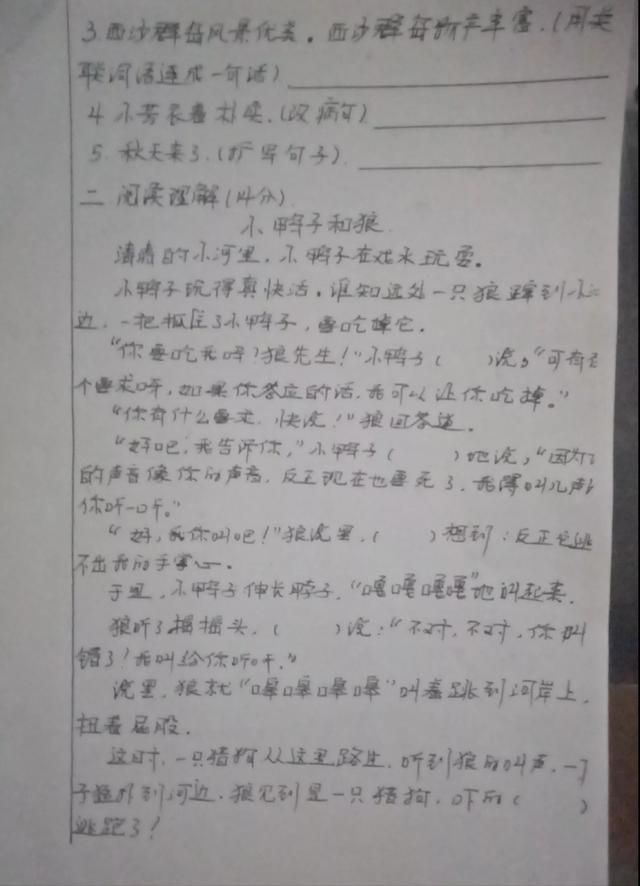 3.西沙群岛风景优美。西沙群岛物产丰富。(用关
联词语连成一句话)
4 小芳衣着朴实.(改病句)
5. 秋天来了.(扩写句子)
二 阅读理解(14分)
小鸭子和狼
清清的小河里,小鸭子在戏水玩耍。
小鸭子玩得真快活。谁知远处一只狼蹿到小
边,一把抓住了小鸭子,要吃掉它.
"你要吃我呀?狼先生!"小鸭子( )说,"可有
个要求呀,如果你答应的话,我可以让你吃掉。"
"你有什么要求,快说!"狼回答道.
"好吧,我告诉你,"小鸭子( )地说,"因为
的声音像你的声音,反正现在也要死了,我得叫几声
你听一听。"
"好,那你叫吧!"狼说里,( )想到:反正它逃
不出我的手掌心.
于是,小鸭子伸长脖子,"嘎嘎嘎嘎"地叫起来.
狼听了摇摇头,( )说:"不对,不对,你叫
错了!我叫给你听听."
说里,狼就"嗥嗥嗥嗥"叫着跳到河岸上,
扭着屁股.
这时,一只猎狗从这里路过,听到狼的叫声,一下
子赶到河边.狼见到是一只猎狗,吓的( )
逃跑了!